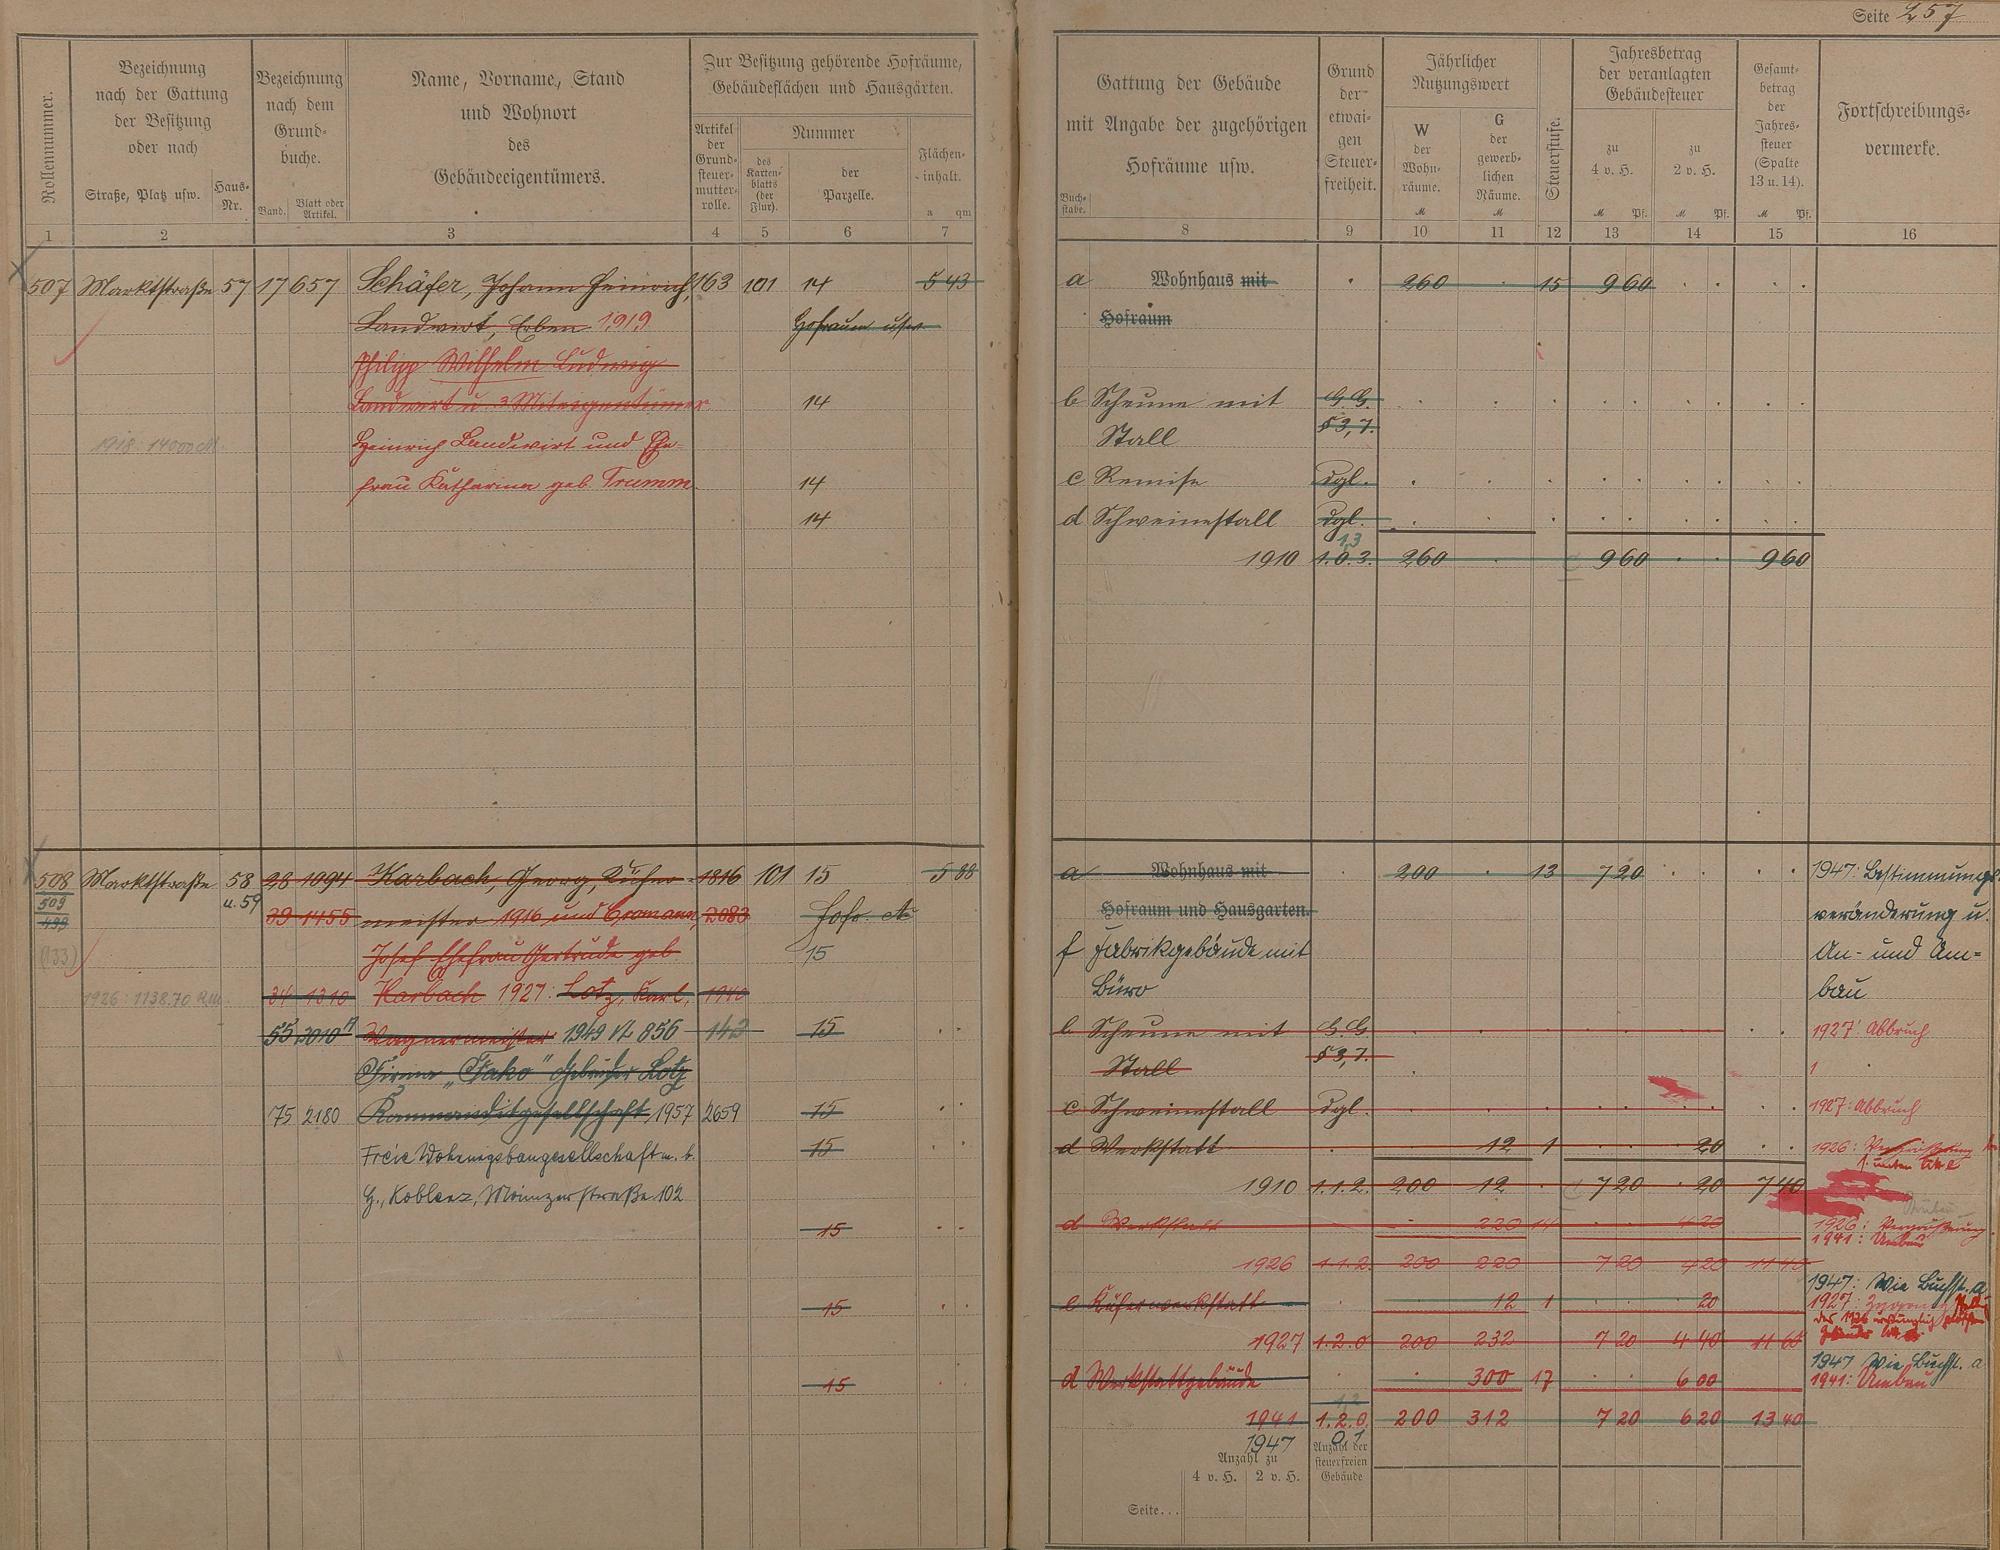 Seite 257
Rollennummer.
Bezeichnung
nach der Gattung
der Besitzung
oder nach
Straße, Platz usw.
Haus-
Nr.
Bezeichnung
nach dem
Grund-
buche.
Band.
Blatt oder
Artikel.
Name, Vorname, Stand
und Wohnort
des
Gebäudeeigentümers.
Zur Besitzung gehörende Hofräume,
Gebäudeflächen und Hausgärten.
Artikel
der
Grund-
steuer-
mutter-
rolle.
Nummer
des
Karten-
blatts
(der
Flur).
der
Parzelle.
Flächen-
inhalt.
a qm
1 2 3 4 5 6 7
507 Marktstraße 57 17 657 Schäfer, Johann Heinrich, 163 101 14 5 43
Landwirt, Erben 1919 Hofraum usw.
Philipp Wilhelm Ludwig
Landwirt u. 3 Miteigentümer 14
1918: 14000 M Heinrich Landwirt und Ehe-
frau Katharina geb. Trumm. 14
14
508 Marktstraße 58 28 1094 Karbach, Georg, Küfer- 1816 101 15 5 88
509 u. 59 39 1455 meister 1916 und Cromann, 2083 Hofr.
499
(133) Josef Ehefrau Gertrude geb 15
1926: 1138.70 RM 34 1310 Karbach 1927: Lotz, Karl, 1940
55 3010 Wagnermeister 1949 N 856 143 15
Firma „Fako" Gebrüder Lotz
75 2180 Kommanditgesellschaft 1957 2659 15
Freie Wohnungsbaugesellschaft m. b. 15
H., Koblenz, Mainzer Straße 102
15
15
15
Gattung der Gebäude
mit Angabe der zugehörigen
Hofräume usw.
Buch-
stabe.
Grund
der
etwai-
gen
Steuer-
freiheit.
Jährlicher
Nutzungswert
W
der
Wohn-
räume.
M
G
der
gewerb-
lichen
Räume.
M
Steuerstufe.
Jahresbetrag
der veranlagten
Gebäudesteuer
zu
4 v. H.
M Pf.
zu
2 v. H.
M Pf.
Gesamt-
betrag
der
Jahres-
steuer
(Spalte
13 u. 14).
M Pf.
Fortschreibungs-
vermerke.
8 9 10 11 12 13 14 15 16
a Wohnhaus mit 260 15 9 60
Hofraum
b Scheune mit G. G.
Stall § 3, 7.
c Remise dgl.
d Schweinestall dgl.
1,3
1910 1.0.3. 260 9 60 9 60
a Wohnhaus mit 200 13 7 20 1947: Bestimmungs-
Hofraum und Hausgarten. veränderung u.
f Fabrikgebäude mit An- und Um-
Büro bau
b Scheune mit G. G. 1927: Abbruch
Stall § 3, 7.
c Schweinestall dgl. 1927: Abbruch
d Werkstatt 12 1 20 1926: Vergrößerung
1910 1.1.2. 200 12 7 20 20 7 40
d Werkstatt 220 14 4 20 1926: Vergrößerung
1941: Umbau
1926 1.1.2. 200 220 7 20 4 20 11 40
1947: Wie Buchst. a
e Küferwerkstatt 12 1 20 1927: Zugang
1927 1.2.0 200 232 7 20 4 40 11 60
1947 Wie Buchst. a
d Werkstattgebäude 300 17 6 00 1941: Umbau
1,2
1941 1.2.0. 200 312 7 20 6 20 13 40
1947 0,1
Anzahl zu
4 v. H. 2 v. H.
Anzahl der
steuerfreien
Gebäude
Seite...